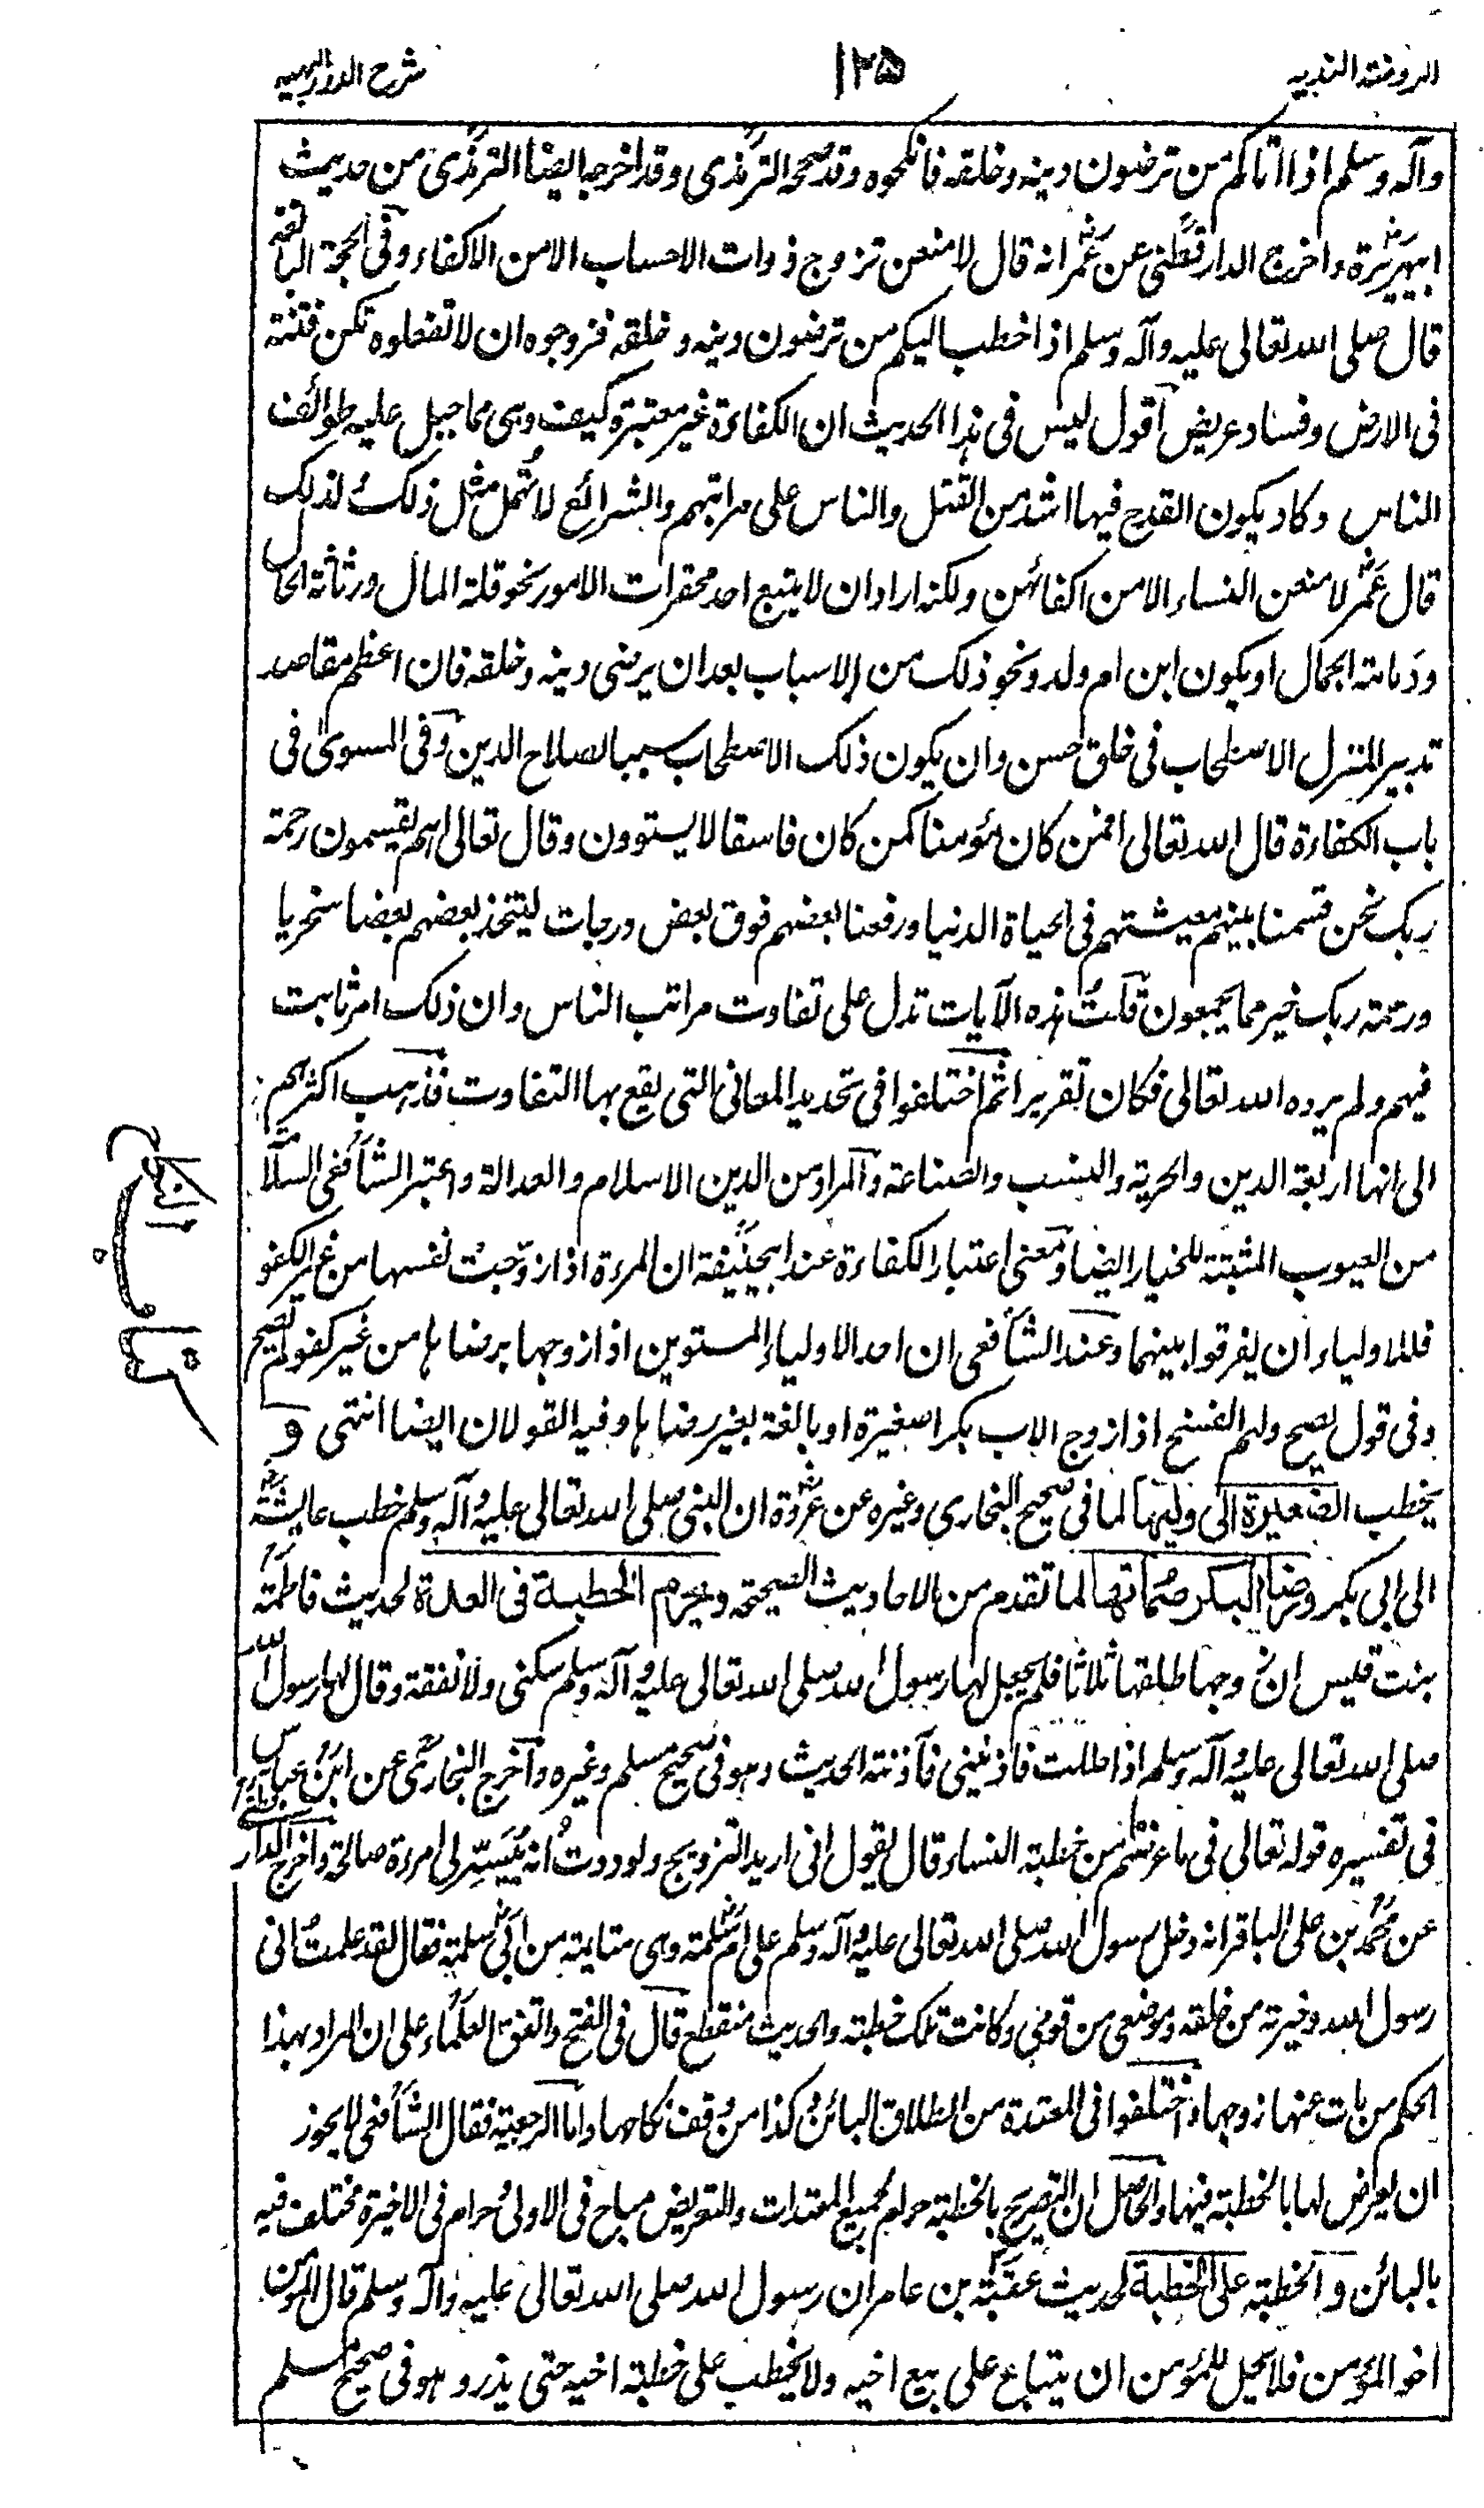 الروضة الندية
١٢٥
شرح الدرر البهية
وآله وسلم اذا اتاكم من ترضون دينه وخلقه فانكحوه وقد صححه الترمذى وقد اخرجه ايضا الترمذى من حديث
ابيهريرة واخرج الدارقطنى عن عمر انه قال لامنعن تزوج ذوات الاحساب الا من الاكفاء وفى الحجة البالغة
قال صلى الله تعالى عليه وآله وسلم اذا خطب اليكم من ترضون دينه وخلقه فزوجوه ان لا تفعلوه تكن فتنة
فى الارض وفساد عريض اقول ليس فى هذا الحديث ان الكفاءة غير معتبرة كيف وهى مما جبل عليه طوائف
الناس وكاد يكون القدح فيها اشد من القتل والناس على مراتبهم والشرائع لا تهمل مثل ذلك ولذلك
قال عمر لامنعن النساء الا من اكفائهن ولكنه اراد ان لا يتبع احد محقرات الامور نحو قلة المال ورثاثة الحال
ودمامة الجمال او يكون ابن ام ولد ونحو ذلك من الاسباب بعد ان يرضى دينه وخلقه فان اعظم مقاصد
تدبير المنزل الاصطحاب فى خلق حسن وان يكون ذلك الاصطحاب سببا لصلاح الدين وفى المسوى فى
باب الكفاءة قال الله تعالى افمن كان مؤمنا كمن كان فاسقا لا يستوون وقال تعالى اهم يقسمون رحمة
ربك نحن قسمنا بينهم معيشتهم فى الحياة الدنيا ورفعنا بعضهم فوق بعض درجات ليتخذ بعضهم بعضا سخريا
ورحمة ربك خير مما يجمعون قلت هذه الآيات تدل على تفاوت مراتب الناس وان ذلك امر ثابت
فيهم ولم يرده الله تعالى فكان تقريرا ثم اختلفوا فى تحديد المعانى التى يقع بها التفاوت فذهب اكثرهم
الى انها اربعة الدين والحرية والنسب والصناعة والمراد من الدين الاسلام والعدالة واعتبر الشافعى السلامة
من العيوب المثبتة للخيار ايضا ومعنى اعتبار الكفاءة عند ابيحنيفة ان المرءة اذا زوجت نفسها من غير الكفو
فللاولياء ان يفرقوا بينهما وعند الشافعى ان احد الاولياء المستوين اذا زوجها برضاها من غير كفو لم يصح
وفى قول يصح ولهم الفسخ اذا زوج الاب بكرا صغيرة او بالغة بغير رضاها وفيه القولان ايضا انتهى و
يخطب الصغيرة الى وليها لما فى صحيح البخارى وغيره عن عروة ان النبى صلى الله تعالى عليه وآله وسلم خطب عايشة
الى ابى بكر ورضا البكر صماتها لما تقدم من الاحاديث الصحيحة ويحرم الخطبة فى العدة لحديث فاطمة
بنت قيس ان زوجها طلقها ثلاثا فلم يجعل لها رسول الله صلى الله تعالى عليه وآله وسلم سكنى ولا نفقة وقال لها رسول الله
صلى الله تعالى عليه وآله وسلم اذا حللت فاذنينى فآذنته الحديث وهو فى صحيح مسلم وغيره واخرج البخارى عن ابن عباس
فى تفسيره قوله تعالى فى ما عرضتم من خطبة النساء قال يقول انى اريد التزويج ولوددت انه ييسر لى امرءة صالحة واخرج الدارقطنى
عن محمد بن على الباقر انه دخل رسول الله صلى الله تعالى عليه وآله وسلم على ام سلمة وهى متايمة من ابى سلمة فقال لقد علمت انى
رسول الله وخيرته من خلقه وموضعى من قومى وكانت تلك خطبته والحديث منقطع قال فى الفتح واتفق العلماء على ان المراد بهذا
الحكم من مات عنها زوجها واختلفوا فى المعتدة من الطلاق البائن وكذا من وقف نكاحها واما الرجعية فقال الشافعى لا يجوز
ان يعرض لها بالخطبة فيها والحاصل ان التصريح بالخطبة حرام لجميع المعتدات والتعريض مباح فى الاولى حرام فى الاخيرة مختلف فيه
بالبائن و الخطبة على الخطبة لحديث عقبة بن عامر ان رسول الله صلى الله تعالى عليه وآله وسلم قال المؤمن
اخو المؤمن فلا يحل للمؤمن ان يبتاع على بيع اخيه ولا يخطب على خطبة اخيه حتى يذر وهو فى صحيح مسلم